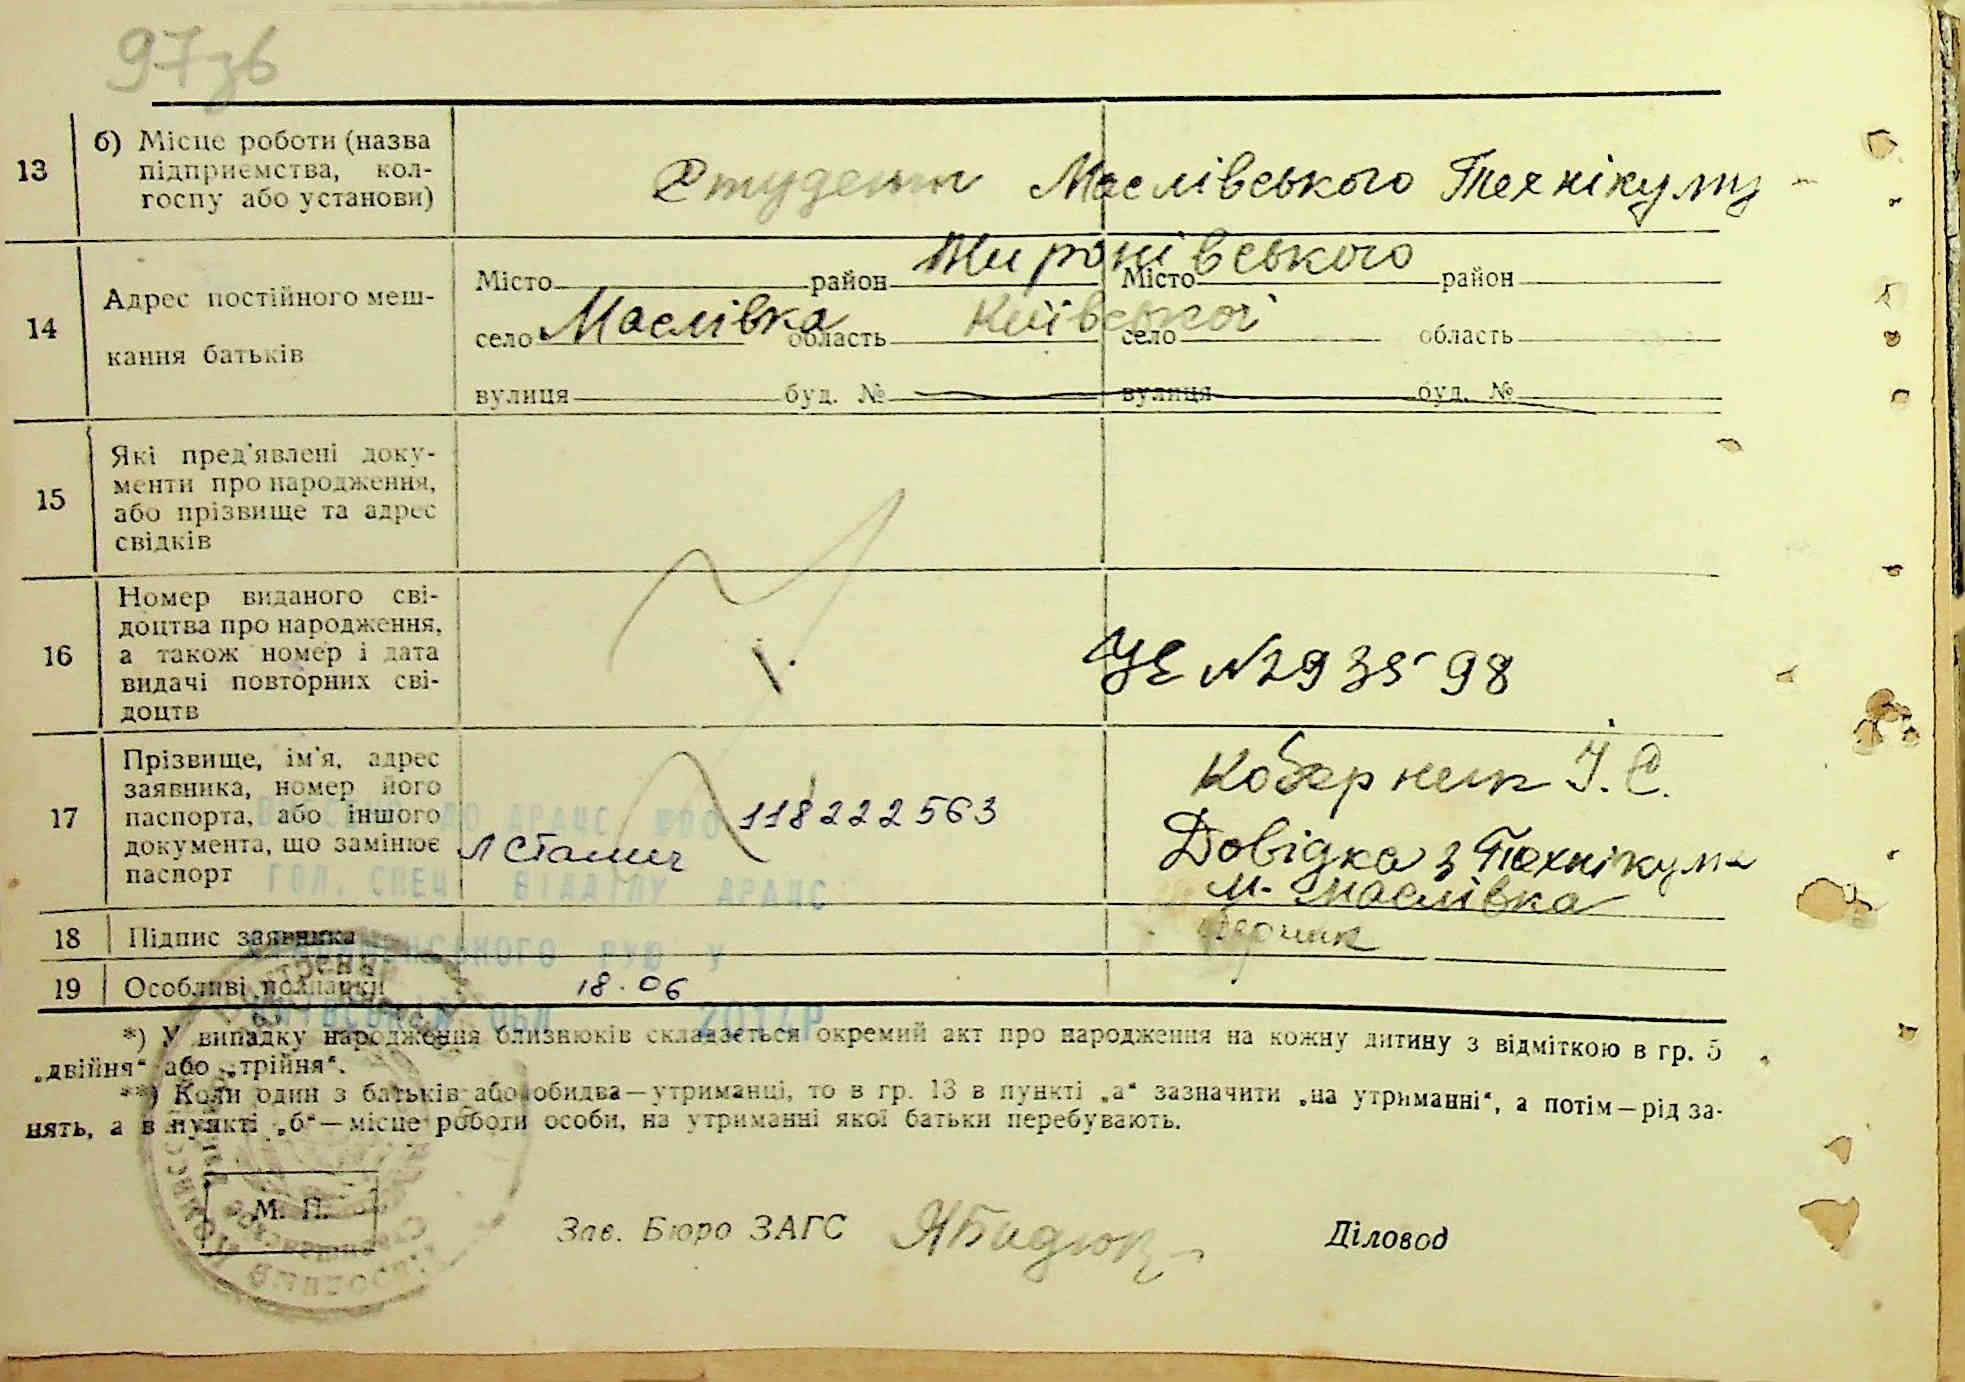 97зв
13
б) Місце роботи (назва
підприємства, кол-
госпу або установи)
Студент Маслівського Технікуму
14
Адрес постійного меш-
кання батьків
Миронівського
Місто район Місто район
село Маслівка область Київської село область
вулиця буд. № вулиця буд. №
15
Які пред'явлені доку-
менти про народження,
або прізвище та адрес
свідків
16
Номер виданого сві-
доцтва про народження,
а також номер і дата
видачі повторних сві-
доцтв
УЕ №293598
17
Прізвище, ім'я, адрес
заявника, номер його
паспорта, або іншого
документа, що замінює
паспорт
118222563
І. С.
Довідка з Технікума
Маслівка
ДО АРАЦС ПРО
ГОЛ. СПЕЦ ВІДДІЛУ АРАЦС
18 Підпис заявника
РУЮ У
19 Особливі позначки 18.06
ОБЛ 2014Р
*) У випадку народження близнюків складається окремий акт про народження на кожну дитину з відміткою в гр. 5
„двійня“ або „трійня“.
**) Коли один з батьків або обидва—утриманці, то в гр. 13 в пункті „а“ зазначити „на утриманні“, а потім—рід за-
нять, а в пункті „б“—місце роботи особи, на утриманні якої батьки перебувають.
М. П.
Зав. Бюро ЗАГС
Діловод